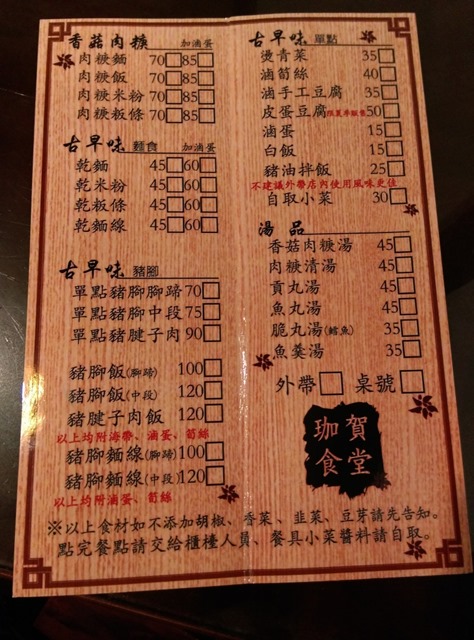 香菇肉糠 加滷蛋
肉糠麵 70 85
肉糠飯 70 85
肉糠米粉 70 85
肉糠板條 70 85
古早味 麵食 加滷蛋
乾麵 45 60
乾米粉 45 60
乾板條 45 60
乾麵線 45 60
古早味 豬腳
單點豬腳腳蹄 70
單點豬腳中段 75
單點豬腱子肉 90
豬腳飯(腳蹄) 100
豬腳飯(中段) 120
豬腱子肉飯 120
以上均附海帶、滷蛋、筍絲
豬腳麵線(腳蹄) 100
豬腳麵線(中段) 120
以上均附滷蛋、筍絲
古早味 單點
燙青菜 35
滷筍絲 40
滷手工豆腐 35
皮蛋豆腐 50
滷蛋 15
白飯 15
豬油拌飯 25
不建議外帶店內使用風味更佳
自取小菜 30
湯品
香菇肉糠湯 45
肉糠清湯 45
貢丸湯 45
魚丸湯 45
脆丸湯(鱈魚) 35
魚羹湯 35
外帶 桌號
珈賀
食堂
※以上食材如不添加胡椒、香菜、韭菜、豆芽請先告知。
點完餐點請交給櫃檯人員、餐具小菜醬料請自取。